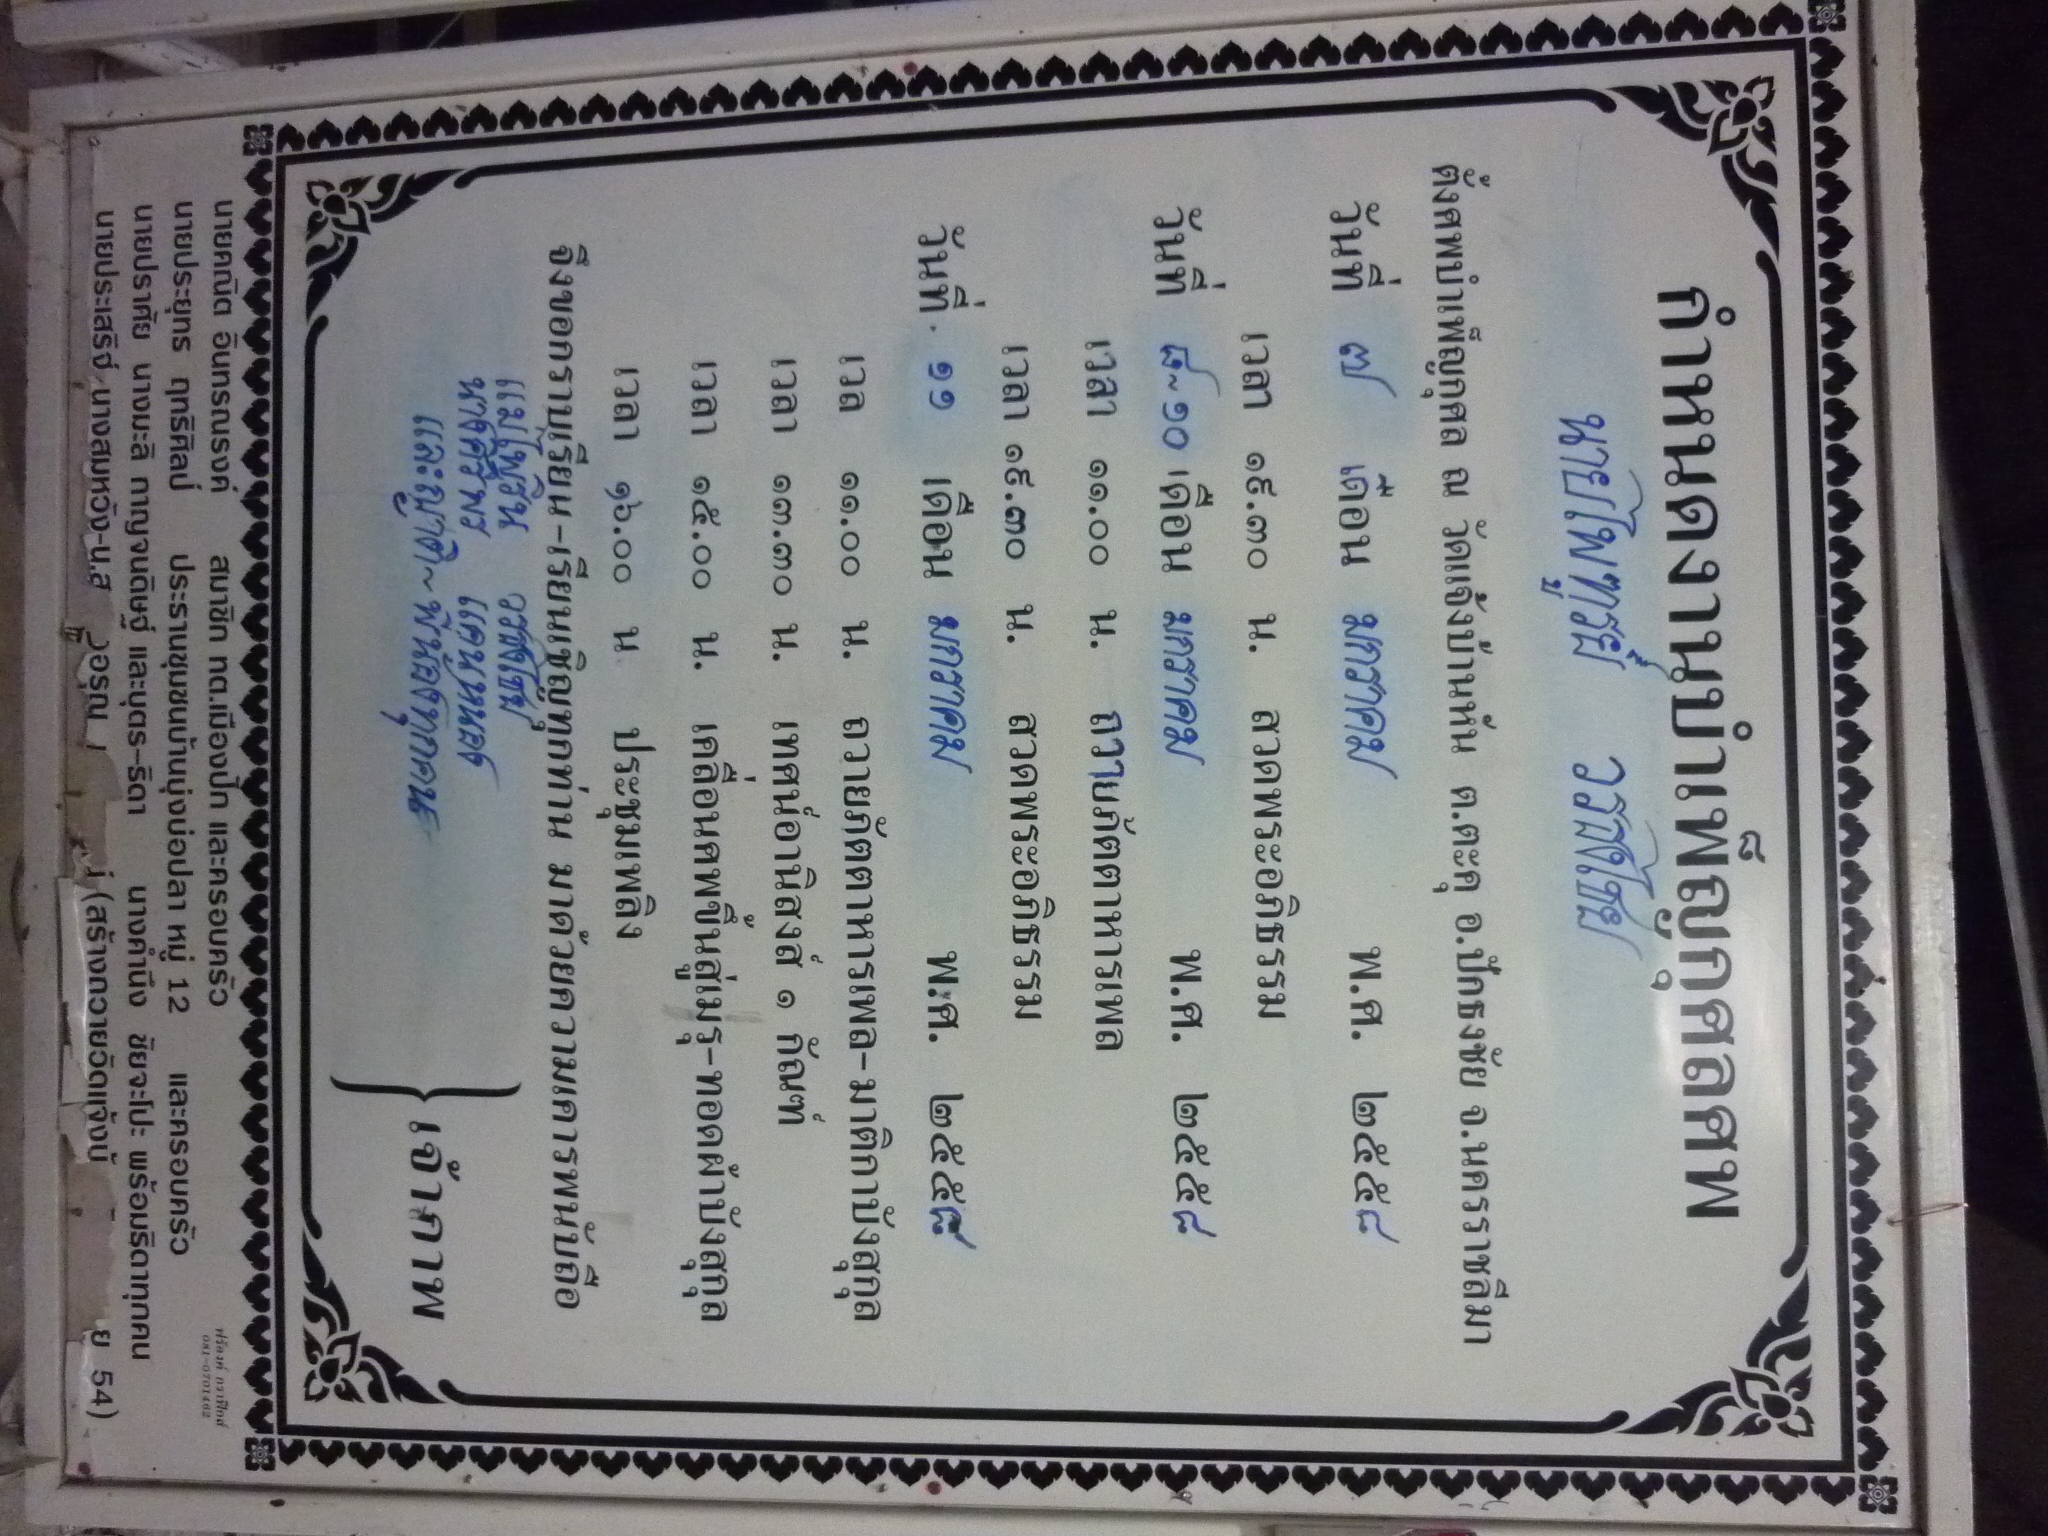 กำหนดงานบำเพ็ญกุศลศพ
นายไพทูรย์ วรสีไชย
ตั้งศพบำเพ็ญกุศล ณ วัดแจ้งบ้านพ้น ต.ตะคุ อ.ปักธงชัย จ.นครราชสีมา
วันที่ ๗ เดือน มกราคม พ.ศ. ๒๕๕๘
เวลา ๑๙.๓๐ น. สวดพระอภิธรรม
วันที่ ๘-๑๐ เดือน มกราคม พ.ศ. ๒๕๕๘
เวลา ๑๑.๐๐ น. ถวายภัตตาหารเพล
เวลา ๑๙.๓๐ น. สวดพระอภิธรรม
วันที่ ๑๑ เดือน มกราคม พ.ศ. ๒๕๕๘
เวล ๑๑.๐๐ น. ถวายภัตตาหารเพล-มาติกาบังสุกุล
เวลา ๑๓.๓๐ น. เทศน์อานิสงส์ ๑ กัณฑ์
เวลา ๑๕.๐๐ น. เคลื่อนศพขึ้นสู่เมรุ-ทอดผ้าบังสุกุล
เวลา ๑๖.๐๐ น ประชุมเพลิง
จึงขอกราบเรียน-เรียนเชิญทุกท่าน มาด้วยความเคารพนับถือ
และญาติ-พี่น้องทุกคน
เจ้าภาพ
นายคณิต อินทรณรงค์ สมาชิก ทต.เมืองปัก และครอบครัว
นายประยุทธ ฤทธิศิลป์ ประธานชุมชนบ้านบุ่งบ่อปลา หมู่ 12 และครอบครัว
นายปราศัย นางมะลิ กาญจนดิษฐ์ และบุตร-ธิดา นางคำนึง ชัยจะโปะ พร้อมธิดาทุกคน
นายประเสริฐ นางสมหวัง (สร้างถวายวัดแจ้ง 54)
081-0701482